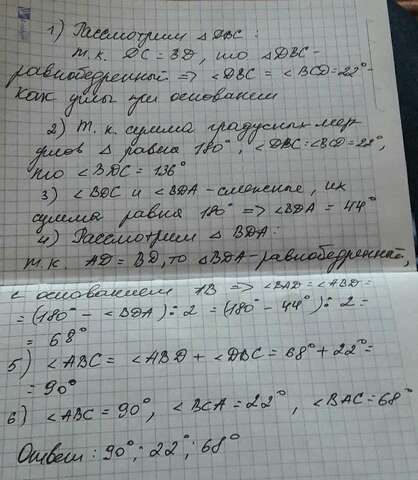 1) Рассмотрим △ DBC :
т.к. DC = BD, то △DBC -
равнобедренный => ∠DBC = ∠BCD=22°-
как углы при основании
2) Т. к. сумма градусных мер
углов △ равна 180°, ∠DBC=∠BCD=22°,
то ∠BDC = 136°
3) ∠BDC и ∠BDA - смежные, их
сумма равна 180° => ∠BDA = 44°
4) Рассмотрим △ BDA:
т.к. AD = BD, то △BDA - равнобедренный,
с основанием AB => ∠BAD = ∠ABD =
= (180° - ∠BDA) : 2 = (180° - 44°) : 2 =
= 68°
5) ∠ABC = ∠ABD + ∠DBC = 68° + 22° =
= 90°
6) ∠ABC = 90°, ∠BCA = 22°, ∠BAC = 68°
Ответ : 90° ; 22° ; 68°